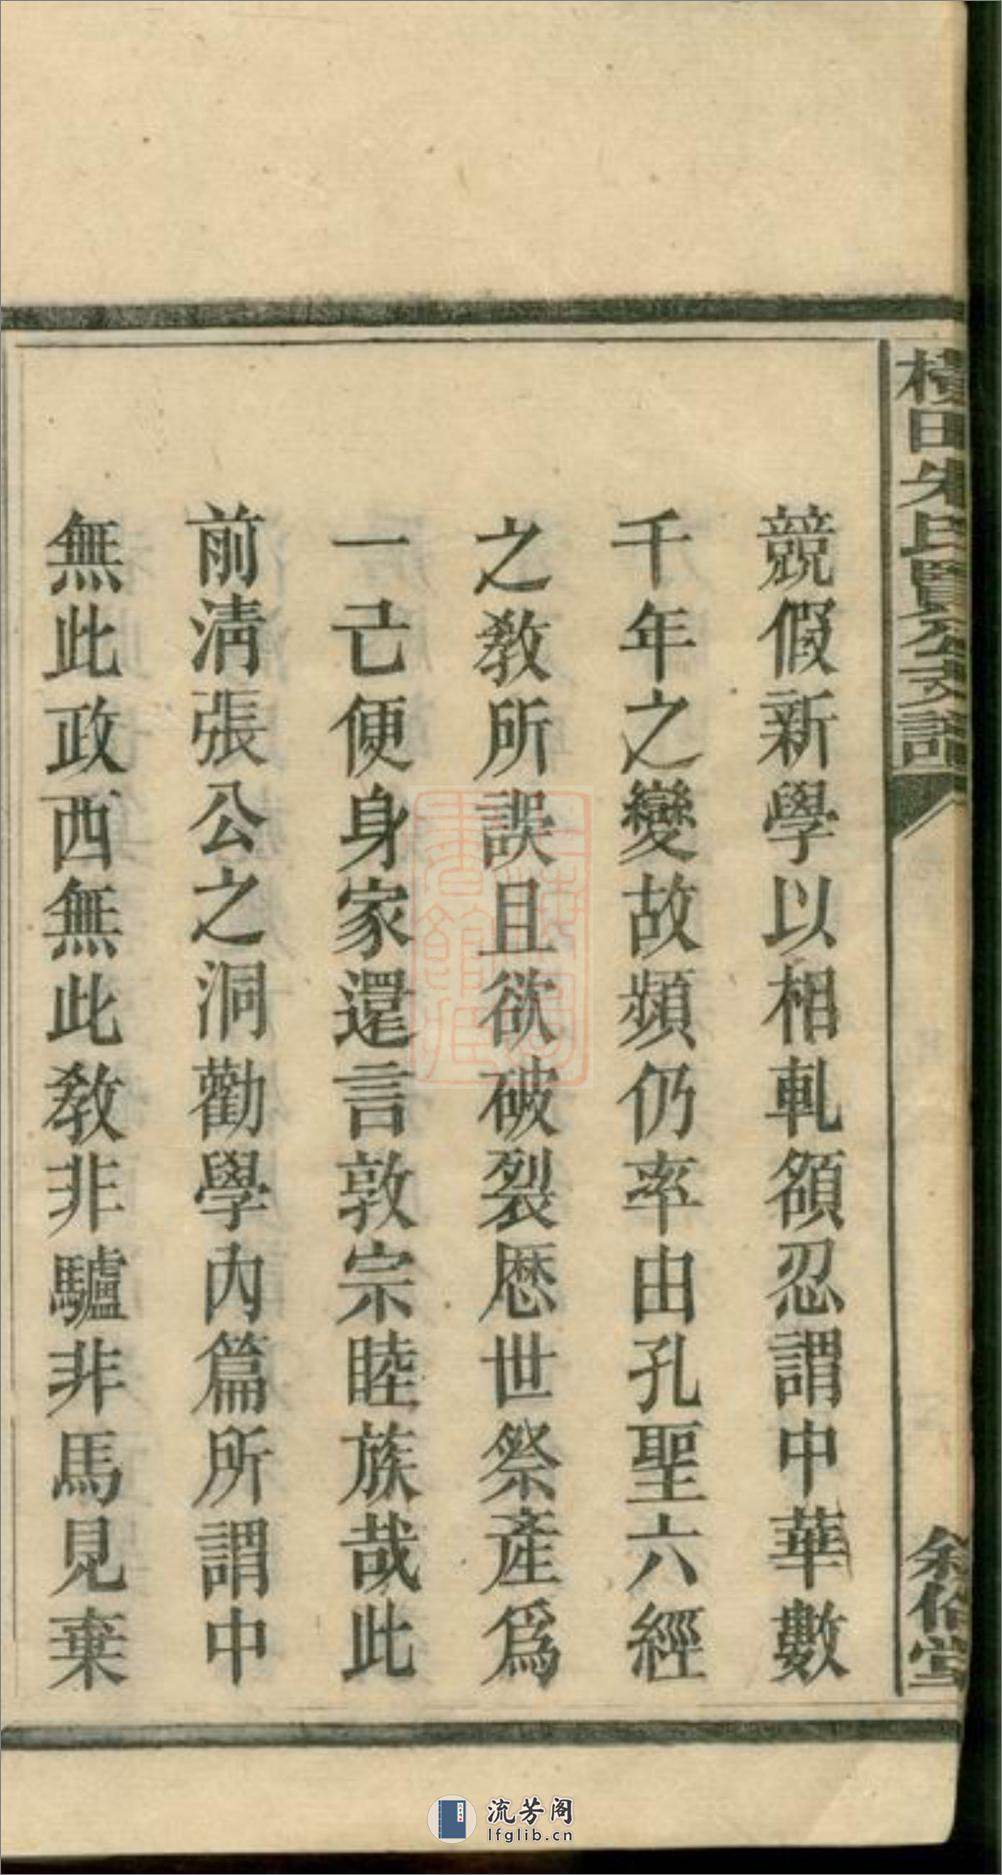 競假新學以相軋頟忍謂中華數
千年之變故頻仍率由孔聖六經
之教所誤且欲破裂厯世祭產爲
一己便身家還言敦宗睦族哉此
前清張公之洞勸學內篇所謂中
無此政西無此教非驢非馬見棄
田朱氏賢公支譜
敘倫堂
上海圖書館藏
流芳阁
lfglib.cn